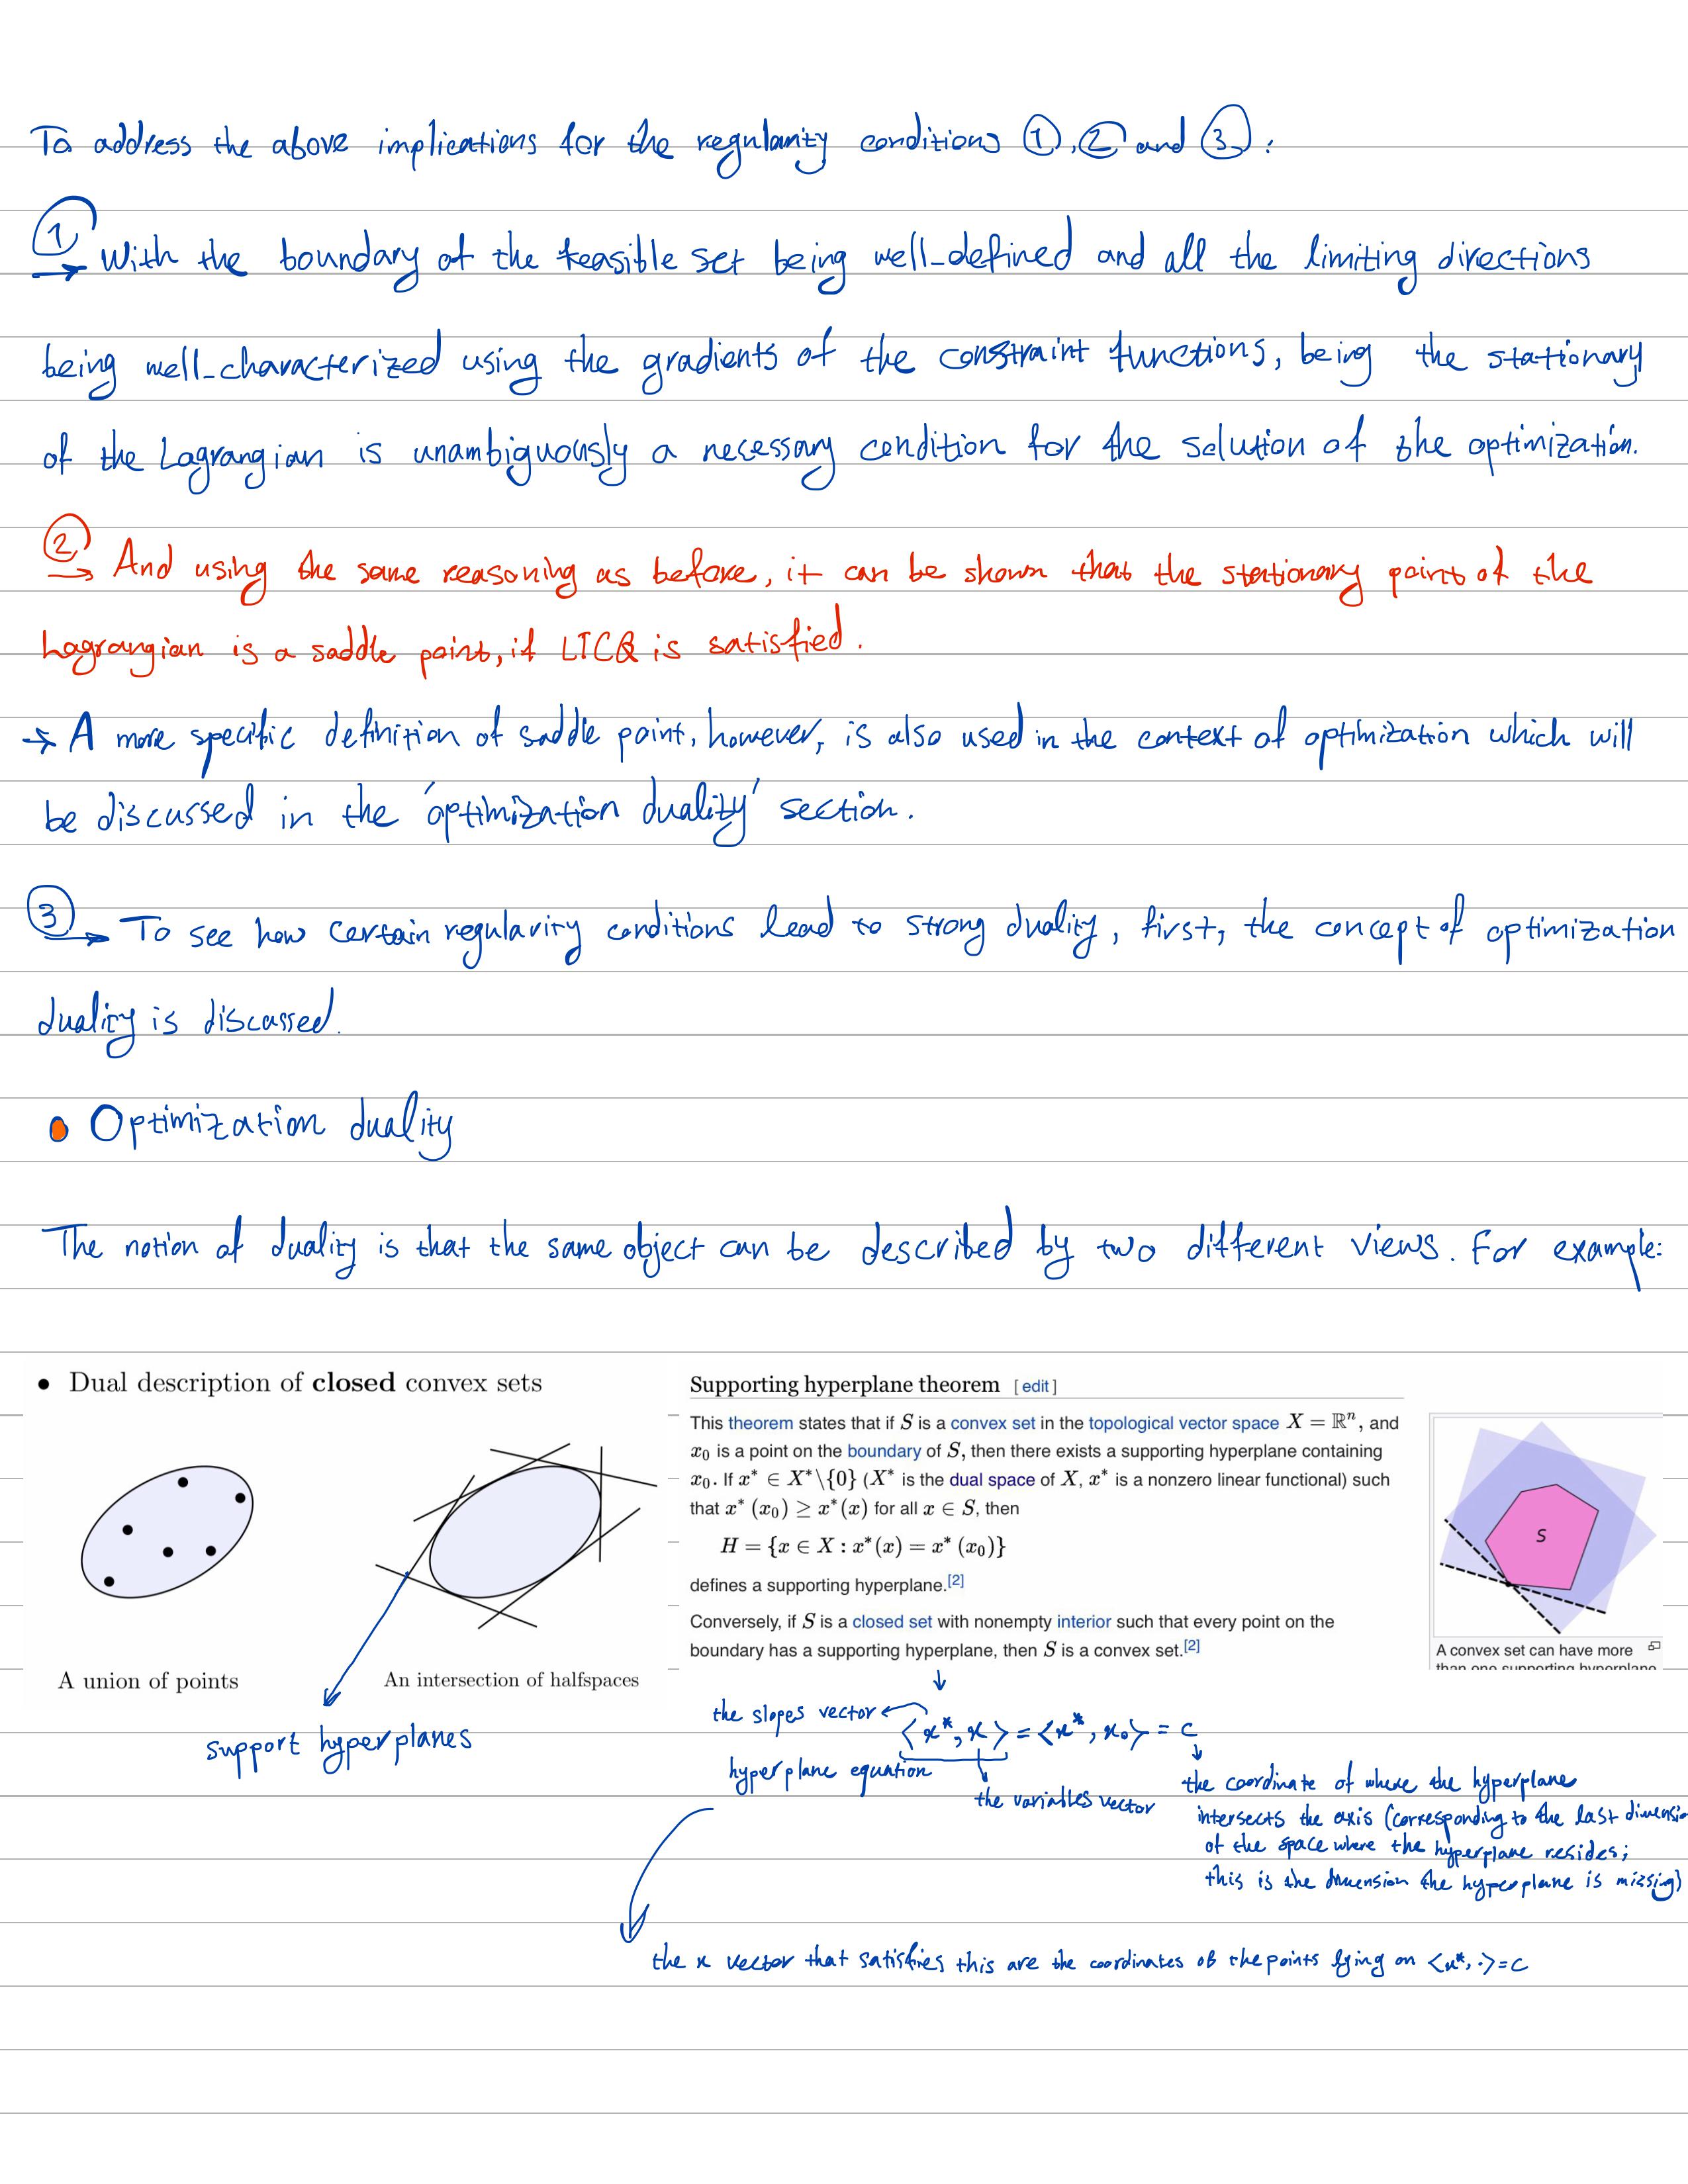 To address the above implications for the regularity conditions ①, ② and ③:
① → With the boundary of the feasible set being well-defined and all the limiting directions
being well-characterized using the gradients of the constraint functions, being the stationary
of the Lagrangian is unambiguously a necessary condition for the solution of the optimization.
② → And using the same reasoning as before, it can be shown that the stationary point of the
Lagrangian is a saddle point, if LICQ is satisfied.
→ A more specific definition of saddle point, however, is also used in the context of optimization which will
be discussed in the 'optimization duality' section.
③ → To see how certain regularity conditions lead to strong duality, first, the concept of optimization
duality is discussed.
• Optimization duality
The notion of duality is that the same object can be described by two different views. For example:
• Dual description of closed convex sets
A union of points
An intersection of halfspaces
support hyperplanes
Supporting hyperplane theorem [ edit ]
This theorem states that if S is a convex set in the topological vector space X = ℝⁿ, and
x₀ is a point on the boundary of S, then there exists a supporting hyperplane containing
x₀. If x* ∈ X*\{0} (X* is the dual space of X, x* is a nonzero linear functional) such
that x* (x₀) ≥ x*(x) for all x ∈ S, then
H = {x ∈ X : x*(x) = x* (x₀)}
defines a supporting hyperplane.[2]
Conversely, if S is a closed set with nonempty interior such that every point on the
boundary has a supporting hyperplane, then S is a convex set.[2]
S
A convex set can have more
than one supporting hyperplane
the slopes vector
⟨x*, x⟩ = ⟨x*, x₀⟩ = c
hyperplane equation
the variables vector
the coordinate of where the hyperplane
intersects the axis (corresponding to the last dimensi
of the space where the hyperplane resides;
this is the dimension the hyperplane is missing)
the x vector that satisfies this are the coordinates of the points lying on ⟨x*, ·⟩ = c